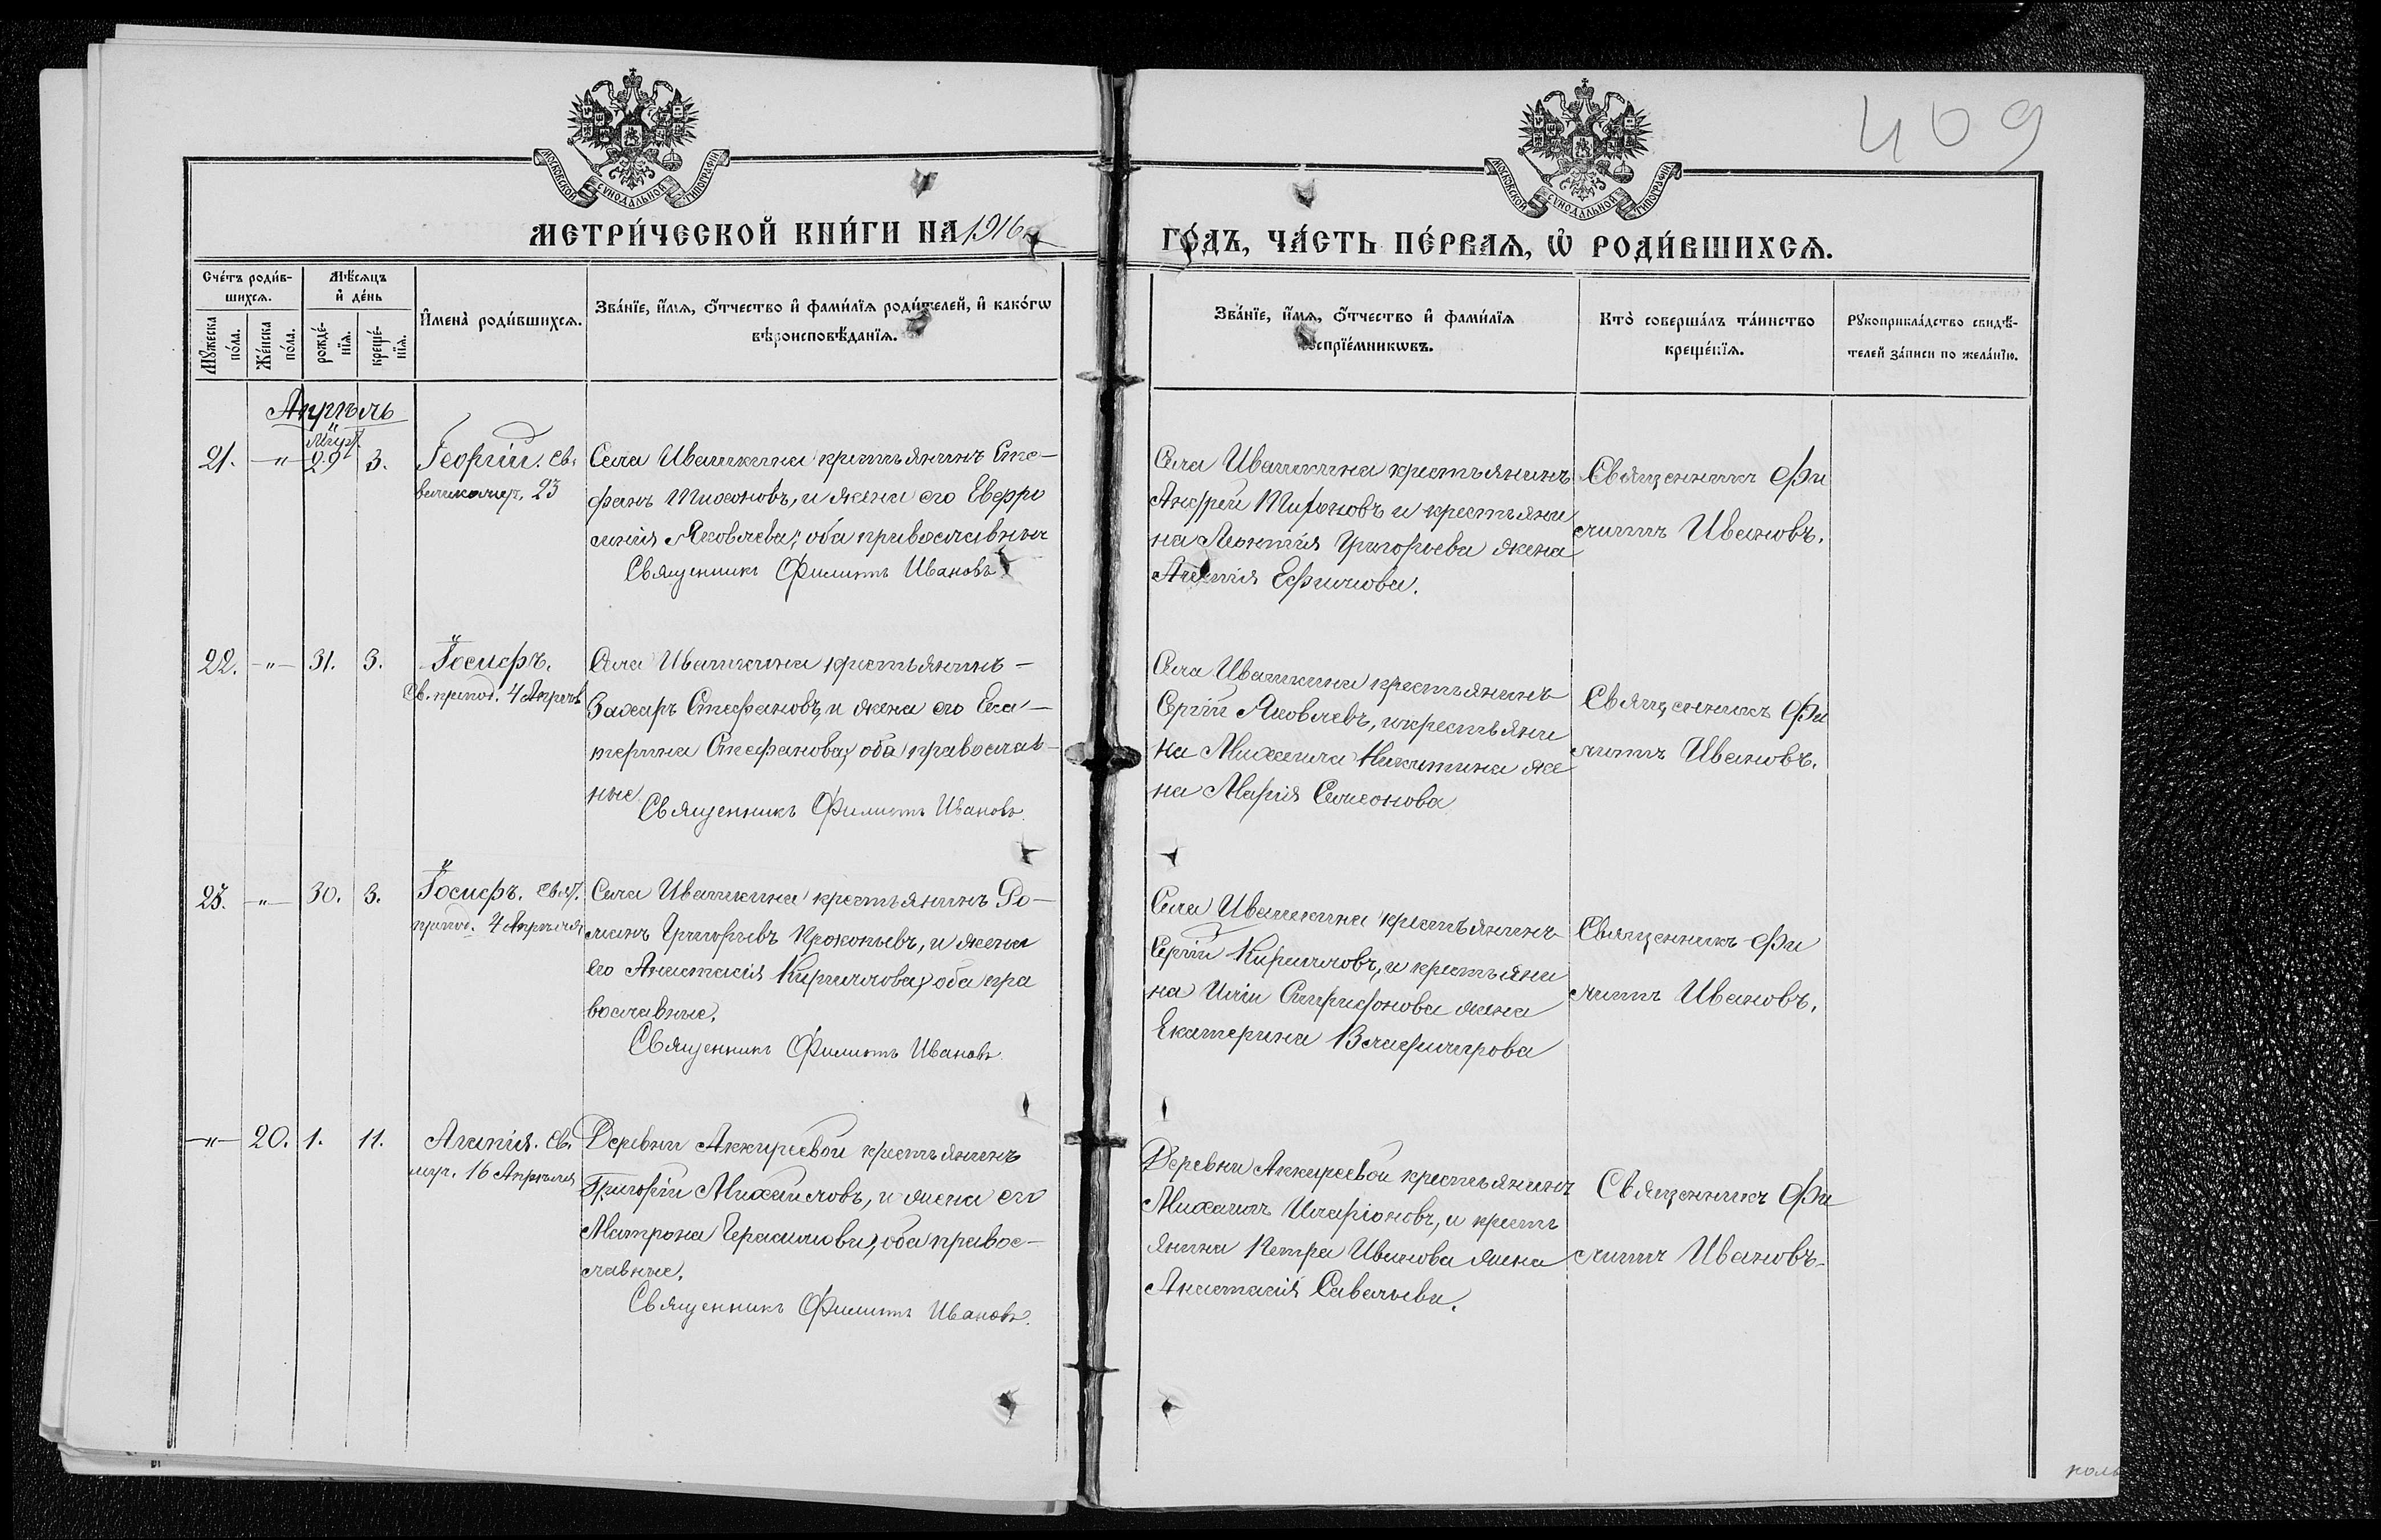 409
МОСКОВСКОЙ СѴНОДАЛЬНОЙ ТИПОГРАФІИ
МОСКОВСКОЙ СѴНОДАЛЬНОЙ ТИПОГРАФІИ
МЕТРИ́ЧЕСКОЙ КНИ́ГИ НА 1916 г.
ГО́ДЪ, ЧА́СТЬ ПЕ́РВАѦ, Ѡ҆ РОДИ́ВШИХСѦ.
Сче́тъ роди́в-
шихсѧ.
Мѣ́сѧцъ
и҆ де́нь
Мꙋ́жеска
по́ла.
Же́нска
по́ла.
рожде́-
нїѧ.
креще́-
нїѧ.
И҆мена̀ роди́вшихсѧ.
Зва́нїе, и҆́мѧ, ѻ҆́тчество и҆ фами́лїѧ роди́телей, и҆ како́гѡ
вѣроисповѣ́данїѧ.
Зва́нїе, и҆́мѧ, ѻ҆́тчество и҆ фами́лїѧ
воспрїе́мникѡвъ.
Кто̀ соверша́лъ та́инство
креще́нїѧ.
Рꙋкоприкла́дство свидѣ́-
телей за́писи по жела́нїю.
Апрѣль
Март.
21. —"— 29 3.
Георгій. Св.
великомуч. 23
Села Ивашкина крестьянинъ Сте-
фанъ Тихоновъ, и жена его Евфро
синія Яковлева, оба православные
Священникъ Филиппъ Ивановъ
Села Ивашкина крестьянинъ
Андрей Тихоновъ и крестьяни
на Леонтія Григорьева жена
Ефимова.
Священникъ Фи
липпъ Ивановъ.
22. —"— 31. 3.
Іосифъ.
Св. препод. 4 Апрѣля
Села Ивашкина крестьянинъ —
Захаръ Стефановъ, и жена его Ека-
терина Стефанова, оба православ-
ные
Священникъ Филиппъ Ивановъ.
Села Ивашкина крестьянинъ
Сергій Яковлевъ, и крестьяни
на Михаила Никитина же
на Марія Симеонова
Священникъ Фи
липпъ Ивановъ.
23. —"— 30. 3.
Іосифъ. Свят.
препод. 4 Апрѣля
Села Ивашкина крестьянинъ Ро-
манъ Григорьевъ Прокопьевъ, и жена
его Анастасія Кириллова, оба пра
вославные.
Священникъ Филиппъ Ивановъ.
Села Ивашкина крестьянинъ
Сергій Кирилловъ, и крестьяни
на Иліи Спиридонова жена
Екатерина Владимирова
Священникъ Фи
липпъ Ивановъ.
—"— 20. 1. 11.
Агапія. Св.
муч. 16 Апрѣля
Деревни Аккиреевой крестьянинъ
Григорій Михаиловъ, и жена его
Матрона Герасимова, оба правос-
лавные.
Священникъ Филиппъ Ивановъ.
Деревни Аккиреевой крестьянинъ
Михаилъ Иларіоновъ, и кресть
янина Петра Иванова жена
Анастасія Савельева.
Священникъ Фи
липпъ Ивановъ.